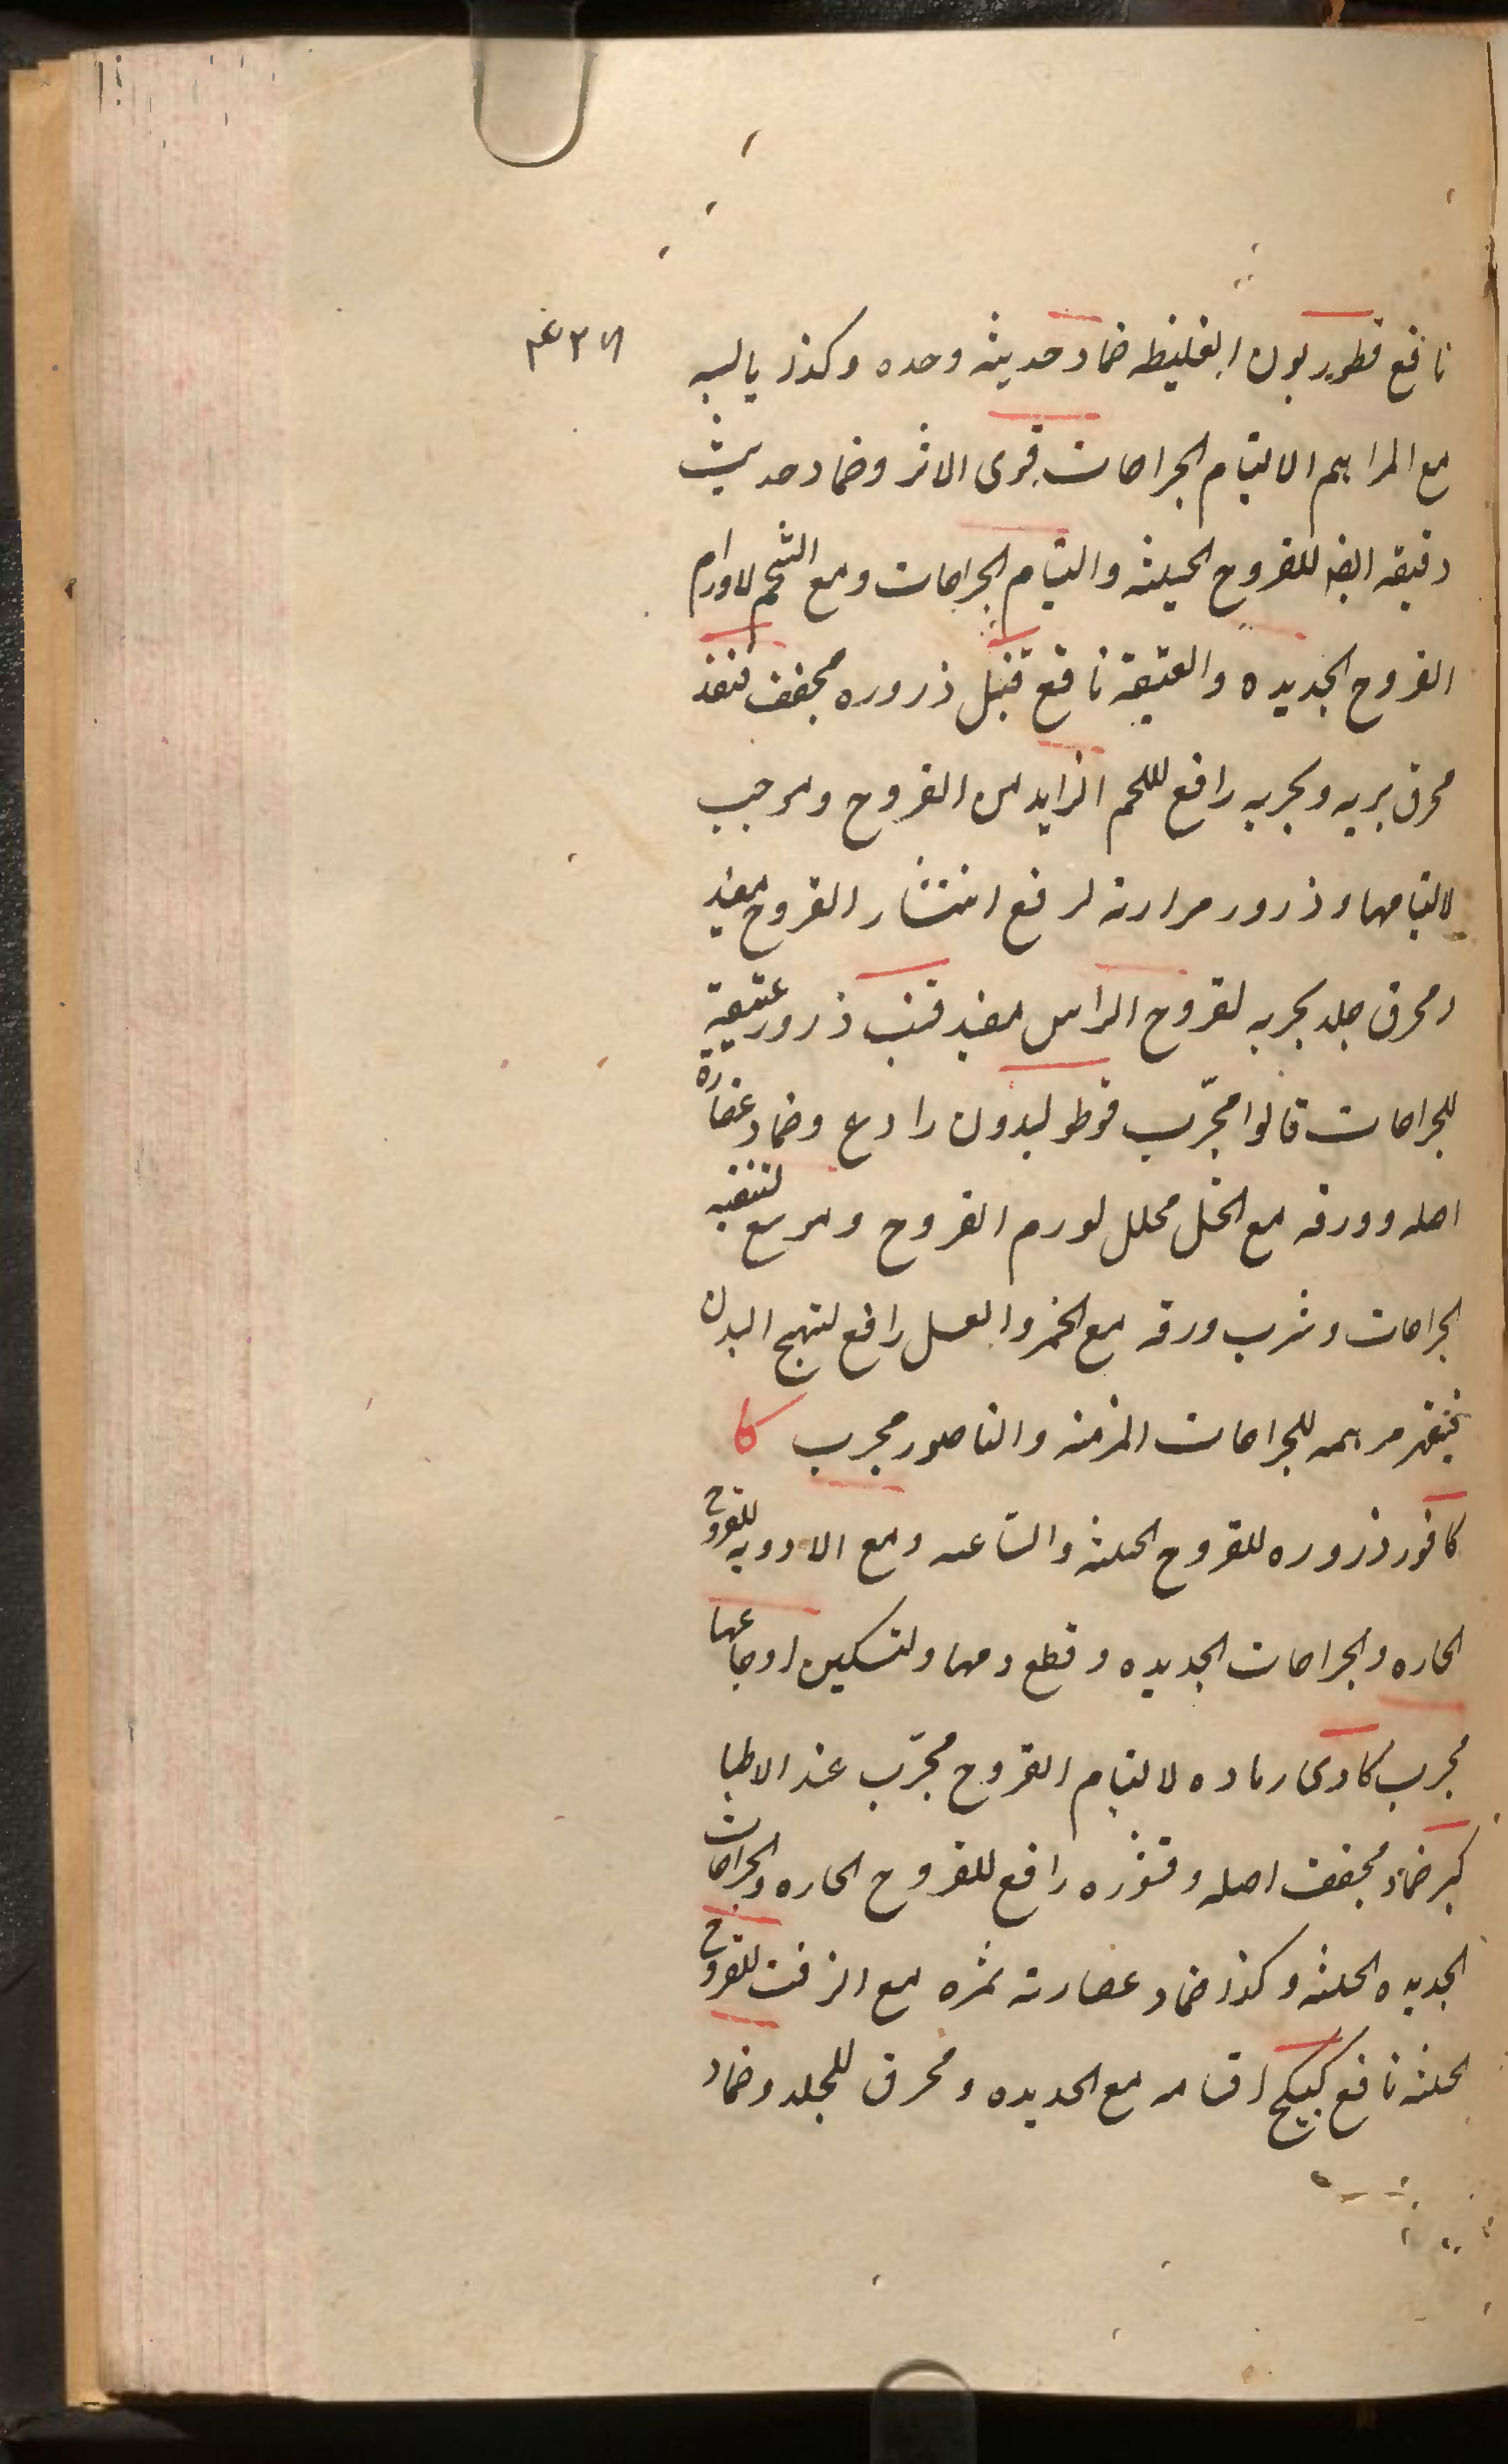 نافع قطوريون الغليظه ضماد حديثه وحده وكذا يابسه
مع المراهم لالتيام الجراحات قوى الاثر وضماد حديث
دقيقه ايضا للقروح الخبيثه والتيام الجراحات ومع الشحم لاورام
القروح الجديده والعتيقه نافع قنبل ذروره مجفف قنفذ
محرق بريه وبحريه رافع لللحم الزايد من القروح وموجب
لالتيامها وذرور مرارته لرفع انتشار القروح مفيد
ومحرق جلد بحريه لقروح الراس مفيد قنب ذرور عتيقة
للجراحات قالوا مجرّب قوطوليدون رادع وضماد عصارة
اصله وورقه مع الخل محلل لورم القروح ومع لتنقيه
الجراحات وشرب ورقه مع الخمر والعسل رافع لتهيج البدن
مرهمه للجراحات المزمنه والناصور مجرب كا
كافور ذروره للقروح الخبيثه والساعيه ومع الادويه للقروح
الحاره والجراحات الجديده وقطع دمها ولتسكين اوجاعها
مجرب كادى رماده لالتيام القروح مجرّب عند الاطبا
كبر ضماد مجفف اصله وقشره رافع للقروح الحاره والجراحات
الجديده الخبيثه وكذا ضماد عصارته ثمره مع الزفت للقروح
الخبيثه نافع كبيكج اقسامه مع الحديده ومحرق للجلد وضماد